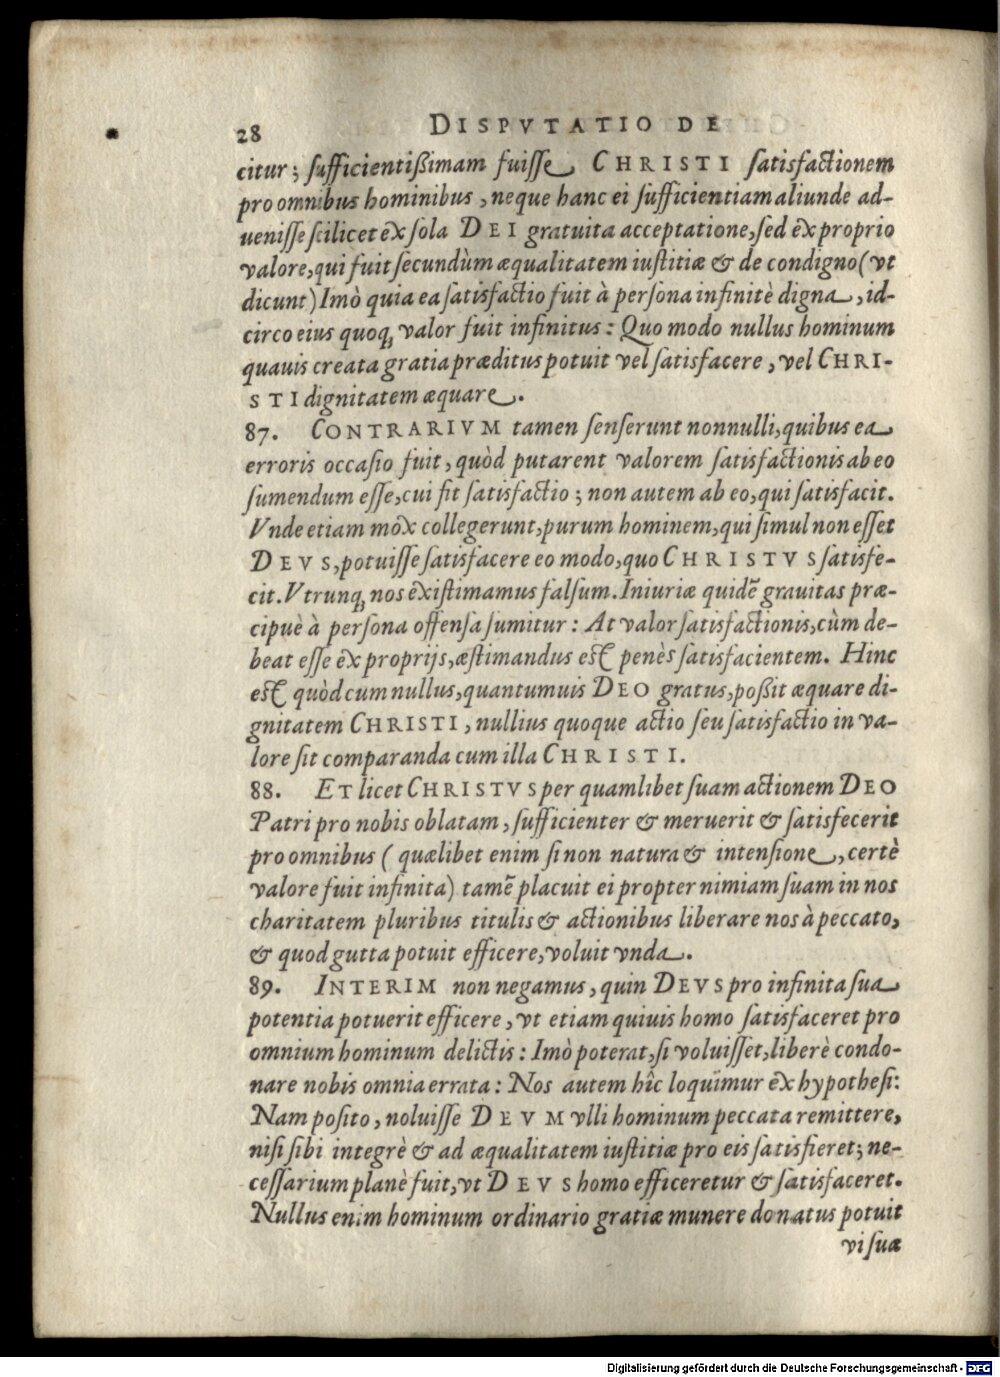 28 DISPVTATIO DE
citur; ſufficientißimam fuiſſe CHRISTI ſatisfactionem
pro omnibus hominibus, neque hanc ei ſufficientiam aliunde ad-
ueniſſe ſcilicet ex ſola DEI gratuita acceptatione, ſed ex proprio
valore, qui fuit ſecundùm æqualitatem iuſtitiæ & de condigno (vt
dicunt) Imò quia ea ſatisfactio fuit à perſona infinitè digna, id-
circo eius quoq; valor fuit infinitus: Quo modo nullus hominum
quauis creata gratia præditus potuit vel ſatisfacere, vel CHRI-
STI dignitatem æquare.
87. CONTRARIVM tamen ſenſerunt nonnulli, quibus ea
erroris occaſio fuit, quòd putarent valorem ſatisfactionis ab eo
ſumendum eſſe, cui fit ſatisfactio; non autem ab eo, qui ſatisfacit.
Vnde etiam mox collegerunt, purum hominem, qui ſimul non eſſet
DEVS, potuiſſe ſatisfacere eo modo, quo CHRISTVS ſatisfe-
cit. Vtrunq; nos exiſtimamus falſum. Iniuriæ quidē grauitas præ-
cipuè à perſona offenſa ſumitur: At valor ſatisfactionis, cùm de-
beat eſſe ex proprijs, æſtimandus eſt penès ſatisfacientem. Hinc
eſt quòd cum nullus, quantumuis DEO gratus, poßit æquare di-
gnitatem CHRISTI, nullius quoque actio ſeu ſatisfactio in va-
lore ſit comparanda cum illa CHRISTI.
88. ET licet CHRISTVS per quamlibet ſuam actionem DEO
Patri pro nobis oblatam, ſufficienter & meruerit & ſatisfecerit
pro omnibus (quælibet enim ſi non natura & intenſione, certè
valore fuit infinita) tamē placuit ei propter nimiam ſuam in nos
charitatem pluribus titulis & actionibus liberare nos à peccato,
& quod gutta potuit efficere, voluit vnda.
89. INTERIM non negamus, quin DEVS pro infinita ſua
potentia potuerit efficere, vt etiam quiuis homo ſatisfaceret pro
omnium hominum delictis: Imò poterat, ſi voluiſſet, liberè condo-
nare nobis omnia errata: Nos autem hîc loquimur ex hypotheſi:
Nam poſito, noluiſſe DEVM vlli hominum peccata remittere,
niſi ſibi integrè & ad æqualitatem iuſtitiæ pro eis ſatisfieret; ne-
ceſſarium planè fuit, vt DEVS homo efficeretur & ſatisfaceret.
Nullus enim hominum ordinario gratiæ munere donatus potuit
vi ſuæ
Digitalisierung gefördert durch die Deutsche Forschungsgemeinschaft - DFG